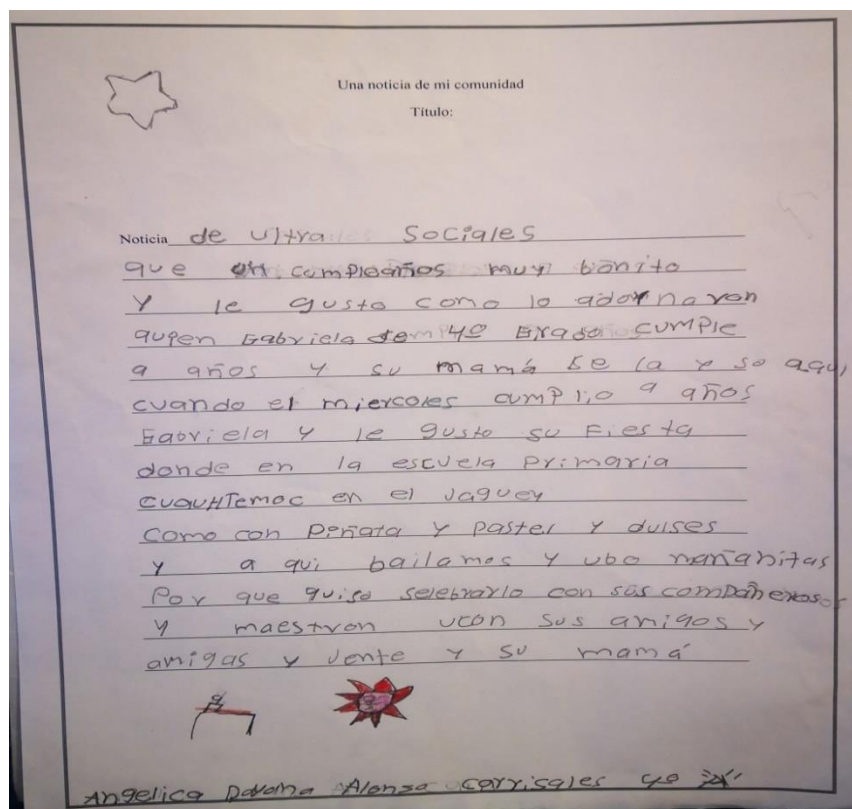 Una noticia de mi comunidad
Título:
Noticia de Ultra Sociales
que un cumpleaños muy bonito
Y le gusto como lo adornaron
quien Gabriela 4º Grado cumple
9 años y su mamá se la y so aqui
cuando el miercoles cumplio 9 años
Gabriela y le gusto su Fiesta
donde en la escuela Primaria
CUAUHTemoc en el Jaguey
Como con Peñata y pastel y dulses
y a qui bailamos y ubo mañanitas
Por que quiso selebrarlo con sus compañeros
y maestron ucon sus amigos y
amigas y Jente y su mamá
Angelica Alonso carrisales 4º